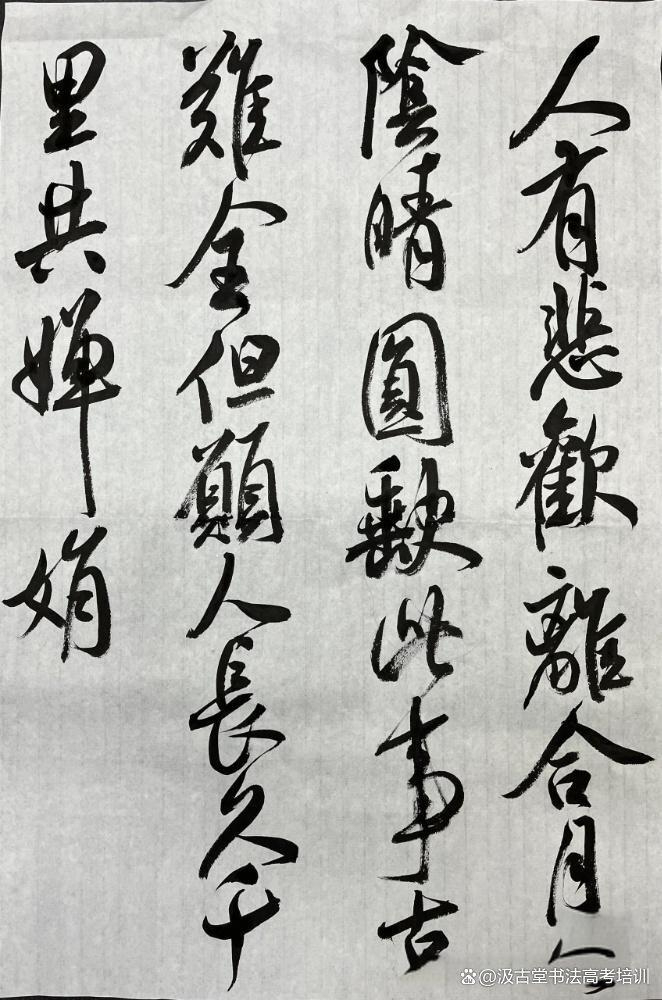 人有悲歡離合月
陰晴圓缺此事古
難全但願人長久千
里共嬋娟
@汲古堂书法高考培训